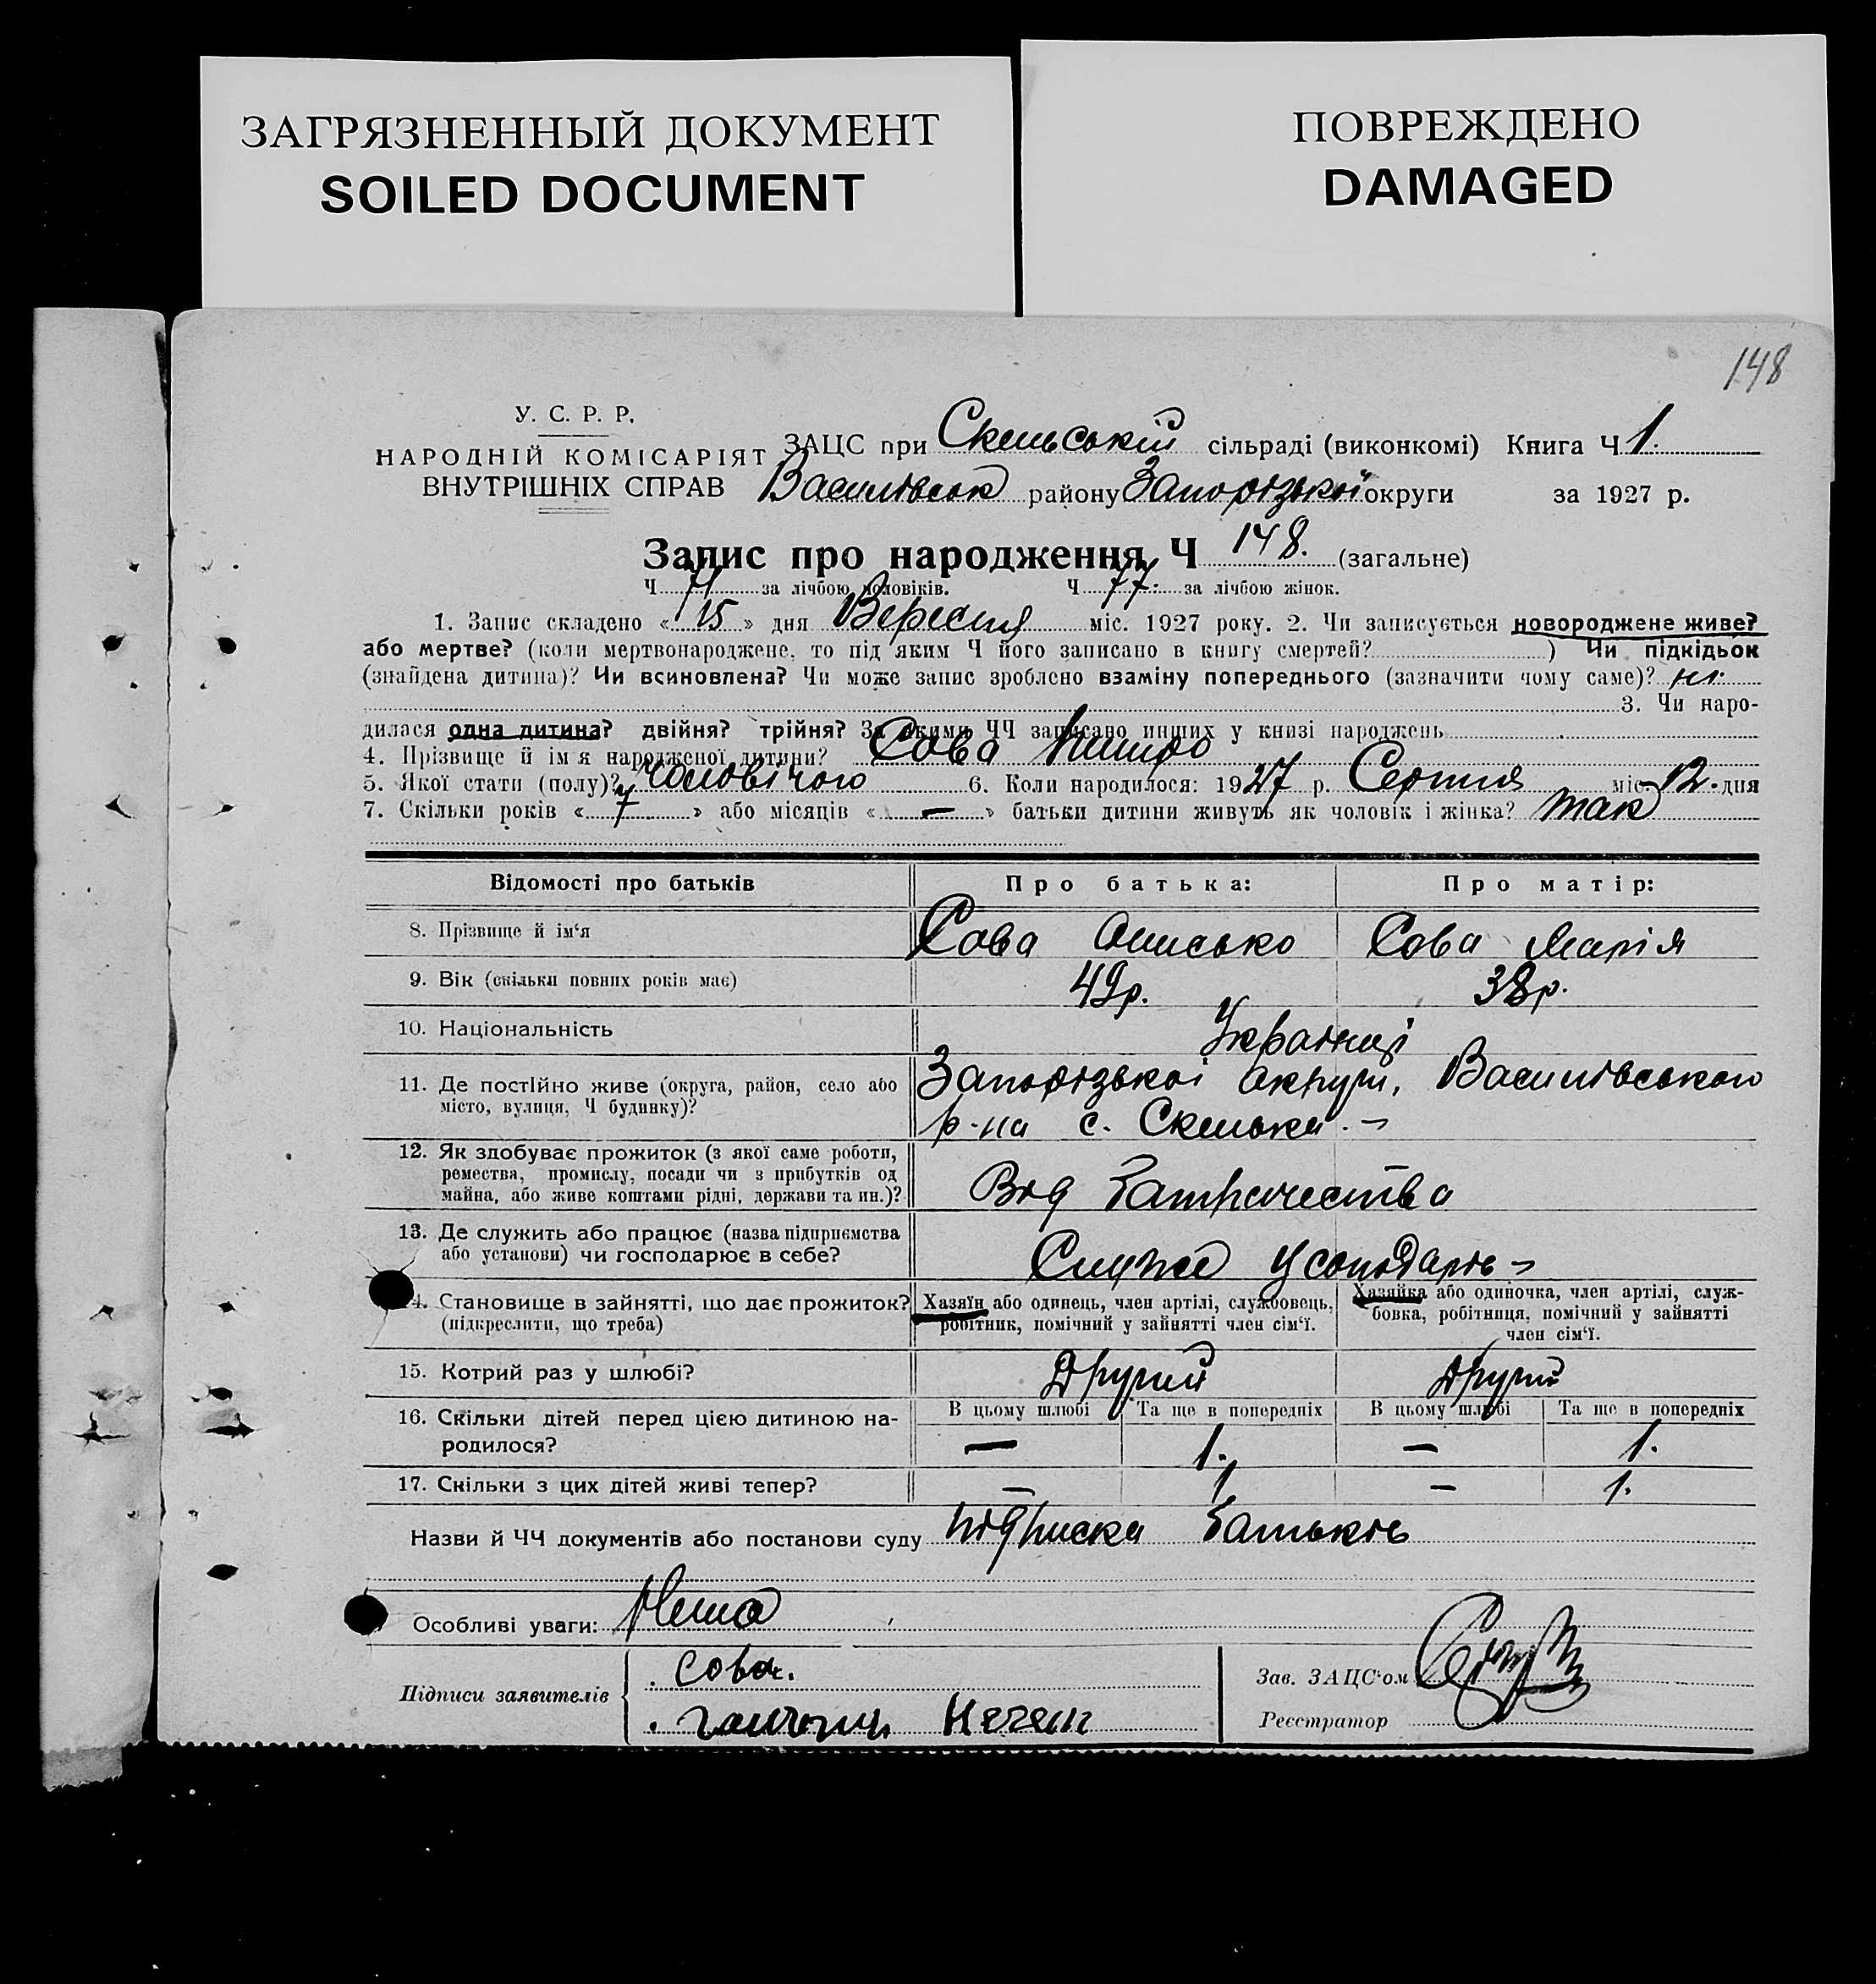 ЗАГРЯЗНЕННЫЙ ДОКУМЕНТ
SOILED DOCUMENT
ПОВРЕЖДЕНО
DAMAGED
148
У. С. Р. Р.
НАРОДНІЙ КОМІСАРІЯТ
ВНУТРІШНІХ СПРАВ
ЗАЦС при Скельській сільраді (виконкомі) Книга Ч 1.
Василівськ району Запорізької округи за 1927 р.
Запис про народження Ч 148. (загальне)
Ч 71 за лічбою чоловіків. Ч 77. за лічбою жінок.
1. Запис складено « 15 » дня Вересня міс. 1927 року. 2. Чи записується новороджене живе?
або мертве? (коли мертвонароджене, то під яким Ч його записано в книгу смертей? ) Чи підкідьок
(знайдена дитина)? Чи всиновлена? Чи може запис зроблено взаміну попереднього (зазначити чому саме)? ні.
3. Чи наро-
дилася одна дитина? двійня? трійня? За якими ЧЧ записано инших у книзі народжень
4. Прізвище й ім'я народженої дитини? Сова
5. Якої стати (полу)? чоловічого 6. Коли народилося: 1927 р. Серпня міс. 12. дня
7. Скільки років « 7 » або місяців « — » батьки дитини живуть як чоловік і жінка? так
Відомості про батьків
Про батька:
Про матір:
8. Прізвище й ім'я
Сова Описько
Сова Марія
9. Вік (скільки повних років має)
49р.
38р.
10. Національність
Українці
11. Де постійно живе (округа, район, село або
місто, вулиця, Ч будинку)?
Запорізької округи, Василівського
р-на с. Скельки. –
12. Як здобуває прожиток (з якої саме роботи,
ремества, промислу, посади чи з прибутків од
майна, або живе коштами рідні, держави та ин.)?
Від батрачества
13. Де служить або працює (назва підприємства
або установи) чи господарює в себе?
Служе
14. Становище в зайнятті, що дає прожиток?
(підкреслити, що треба)
Хазяїн або одинець, член артілі, службовець,
робітник, помічний у зайнятті член сім'ї.
Хазяйка або одиночка, член артілі, служ-
бовка, робітниця, помічний у зайнятті
член сім'ї.
15. Котрий раз у шлюбі?
Другий
Другий
16. Скільки дітей перед цією дитиною на-
родилося?
В цьому шлюбі
Та ще в попередніх
В цьому шлюбі
Та ще в попередніх
—
1.
—
1.
17. Скільки з цих дітей живі тепер?
—
1
—
1.
Назви й ЧЧ документів або постанови суду Підписка батьків
Особливі уваги: Нема
Підписи заявителів
Сова.
Зав. ЗАЦС'ом
Реєстратор